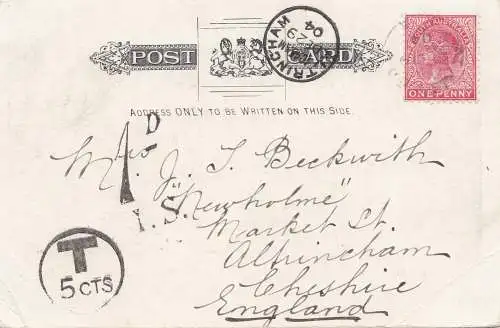 POST CARD
ADDRESS ONLY TO BE WRITTEN ON THIS SIDE.
ALTRINCHAM
04
SOUTH AUSTRALIA
ONE PENNY
1D
I.S.
Mrs J. S. Beckwith
"Newholme"
Market St.
Altrincham
Cheshire
England
T
5 CTS